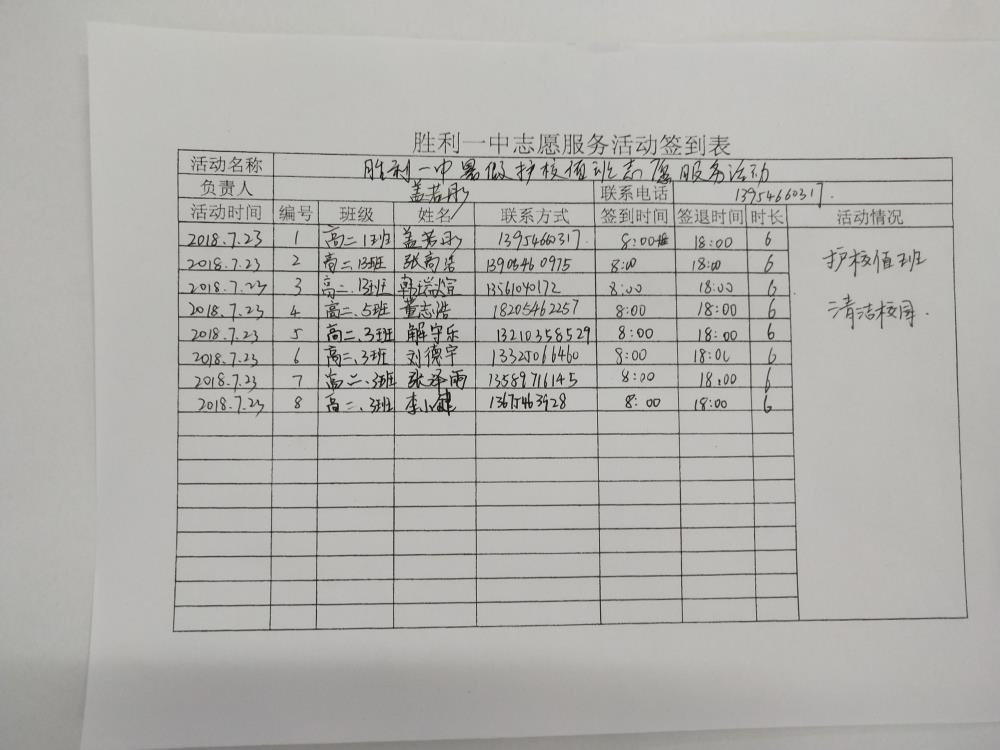 胜利一中志愿服务活动签到表
活动名称 胜利一中暑假护校值班志愿服务活动
负责人 盖若彤 联系电话 13954660317.
活动时间 编号 班级 姓名 联系方式 签到时间 签退时间 时长 活动情况
2018.7.23 1 高二.1班 盖若彤 13954660317. 8:00 18:00 6
2018.7.23 2 高二.13班 张高浩 13905460975 8:00 18:00 6 护校值班
2018.7.23 3 高二.13班 韩瑞 13561040172 8:00 18:00 6
2018.7.23 4 高二.5班 董志浩 18205462257 8:00 18:00 6 清洁校园.
2018.7.23 5 高二.3班 解守乐 13210358529 8:00 18:00 6
2018.7.23 6 高二.3班 刘德宇 13325066460 8:00 18:00 6
2018.7.23 7 高二.3班 张泽雨 13589716145 8:00 18:00 6
2018.7.23 8 高二.3班 李 13675463928 8:00 18:00 6